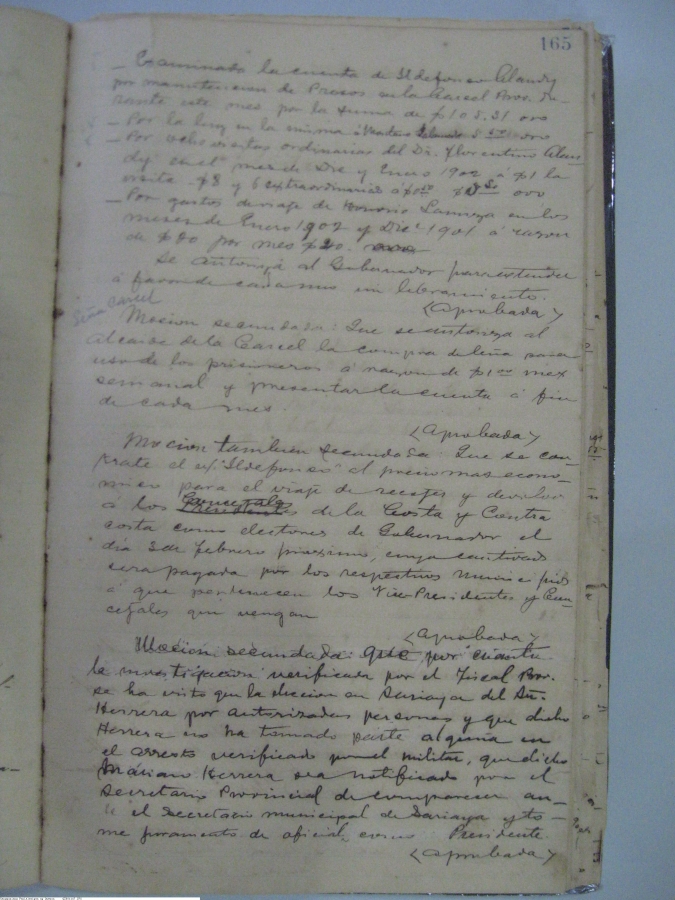 165
Examinado la cuenta de Ildefonso Alandy
por manutencion de Presos en la Carcel Prov. du-
rante este mes por la suma de $108.31 oro
_ Por la luz en la misma
_ Por ocho visitas ordinarias del Dr. Florentino Alan
dy en el mes de Dre y Enero 1902 á $1 la
visita $8 y 6 extraordinarias á oro
_ Por gastos de viaje de Honorio en los
meses de Enero 1902 y Dice 1901 á razon
de por mes $20.
Se autoriza al Gobernador para extender
á favor de cada uno un libramiento.
<Aprobada>
Leña carcel
Mocion secundada: Que se autoriza al
Alcaide de la Carcel la compra de leña para
uso de los prisioneros á razon de $1.00 mex
semanal y presentar la cuenta á fin
de cada mes.
<Aprobada>
Mocion tambien secundada: Que se con-
trate el v/. "Ildefonso" al precio mas econo-
mico para el viaje de recojer y devolver
á los Concejales de la Costa y Contra
costa como electores de Gobernador el
dia 3 de Febrero proximo, cuya cantidad
sera pagada por los respectivos municipios
á que pertenecen los Vice-Presidentes y Con-
cejales que vengan
<Aprobada>
Mocion secundada: Que por cuanto
la investigacion verificada por el Fiscal Prov.
se ha visto que la eleccion en Sariaya del Sr.
Herrera por autorizadas personas y que dicho
Herrera no ha tomado parte alguna en
el arresto verificado por el militar, que dicho
Mariano Herrera sea notificado por el
Secretario Provincial de comparecer an-
te el Secretario municipal de Sariaya y to-
me juramento de oficial, como Presidente.
<Aprobada>